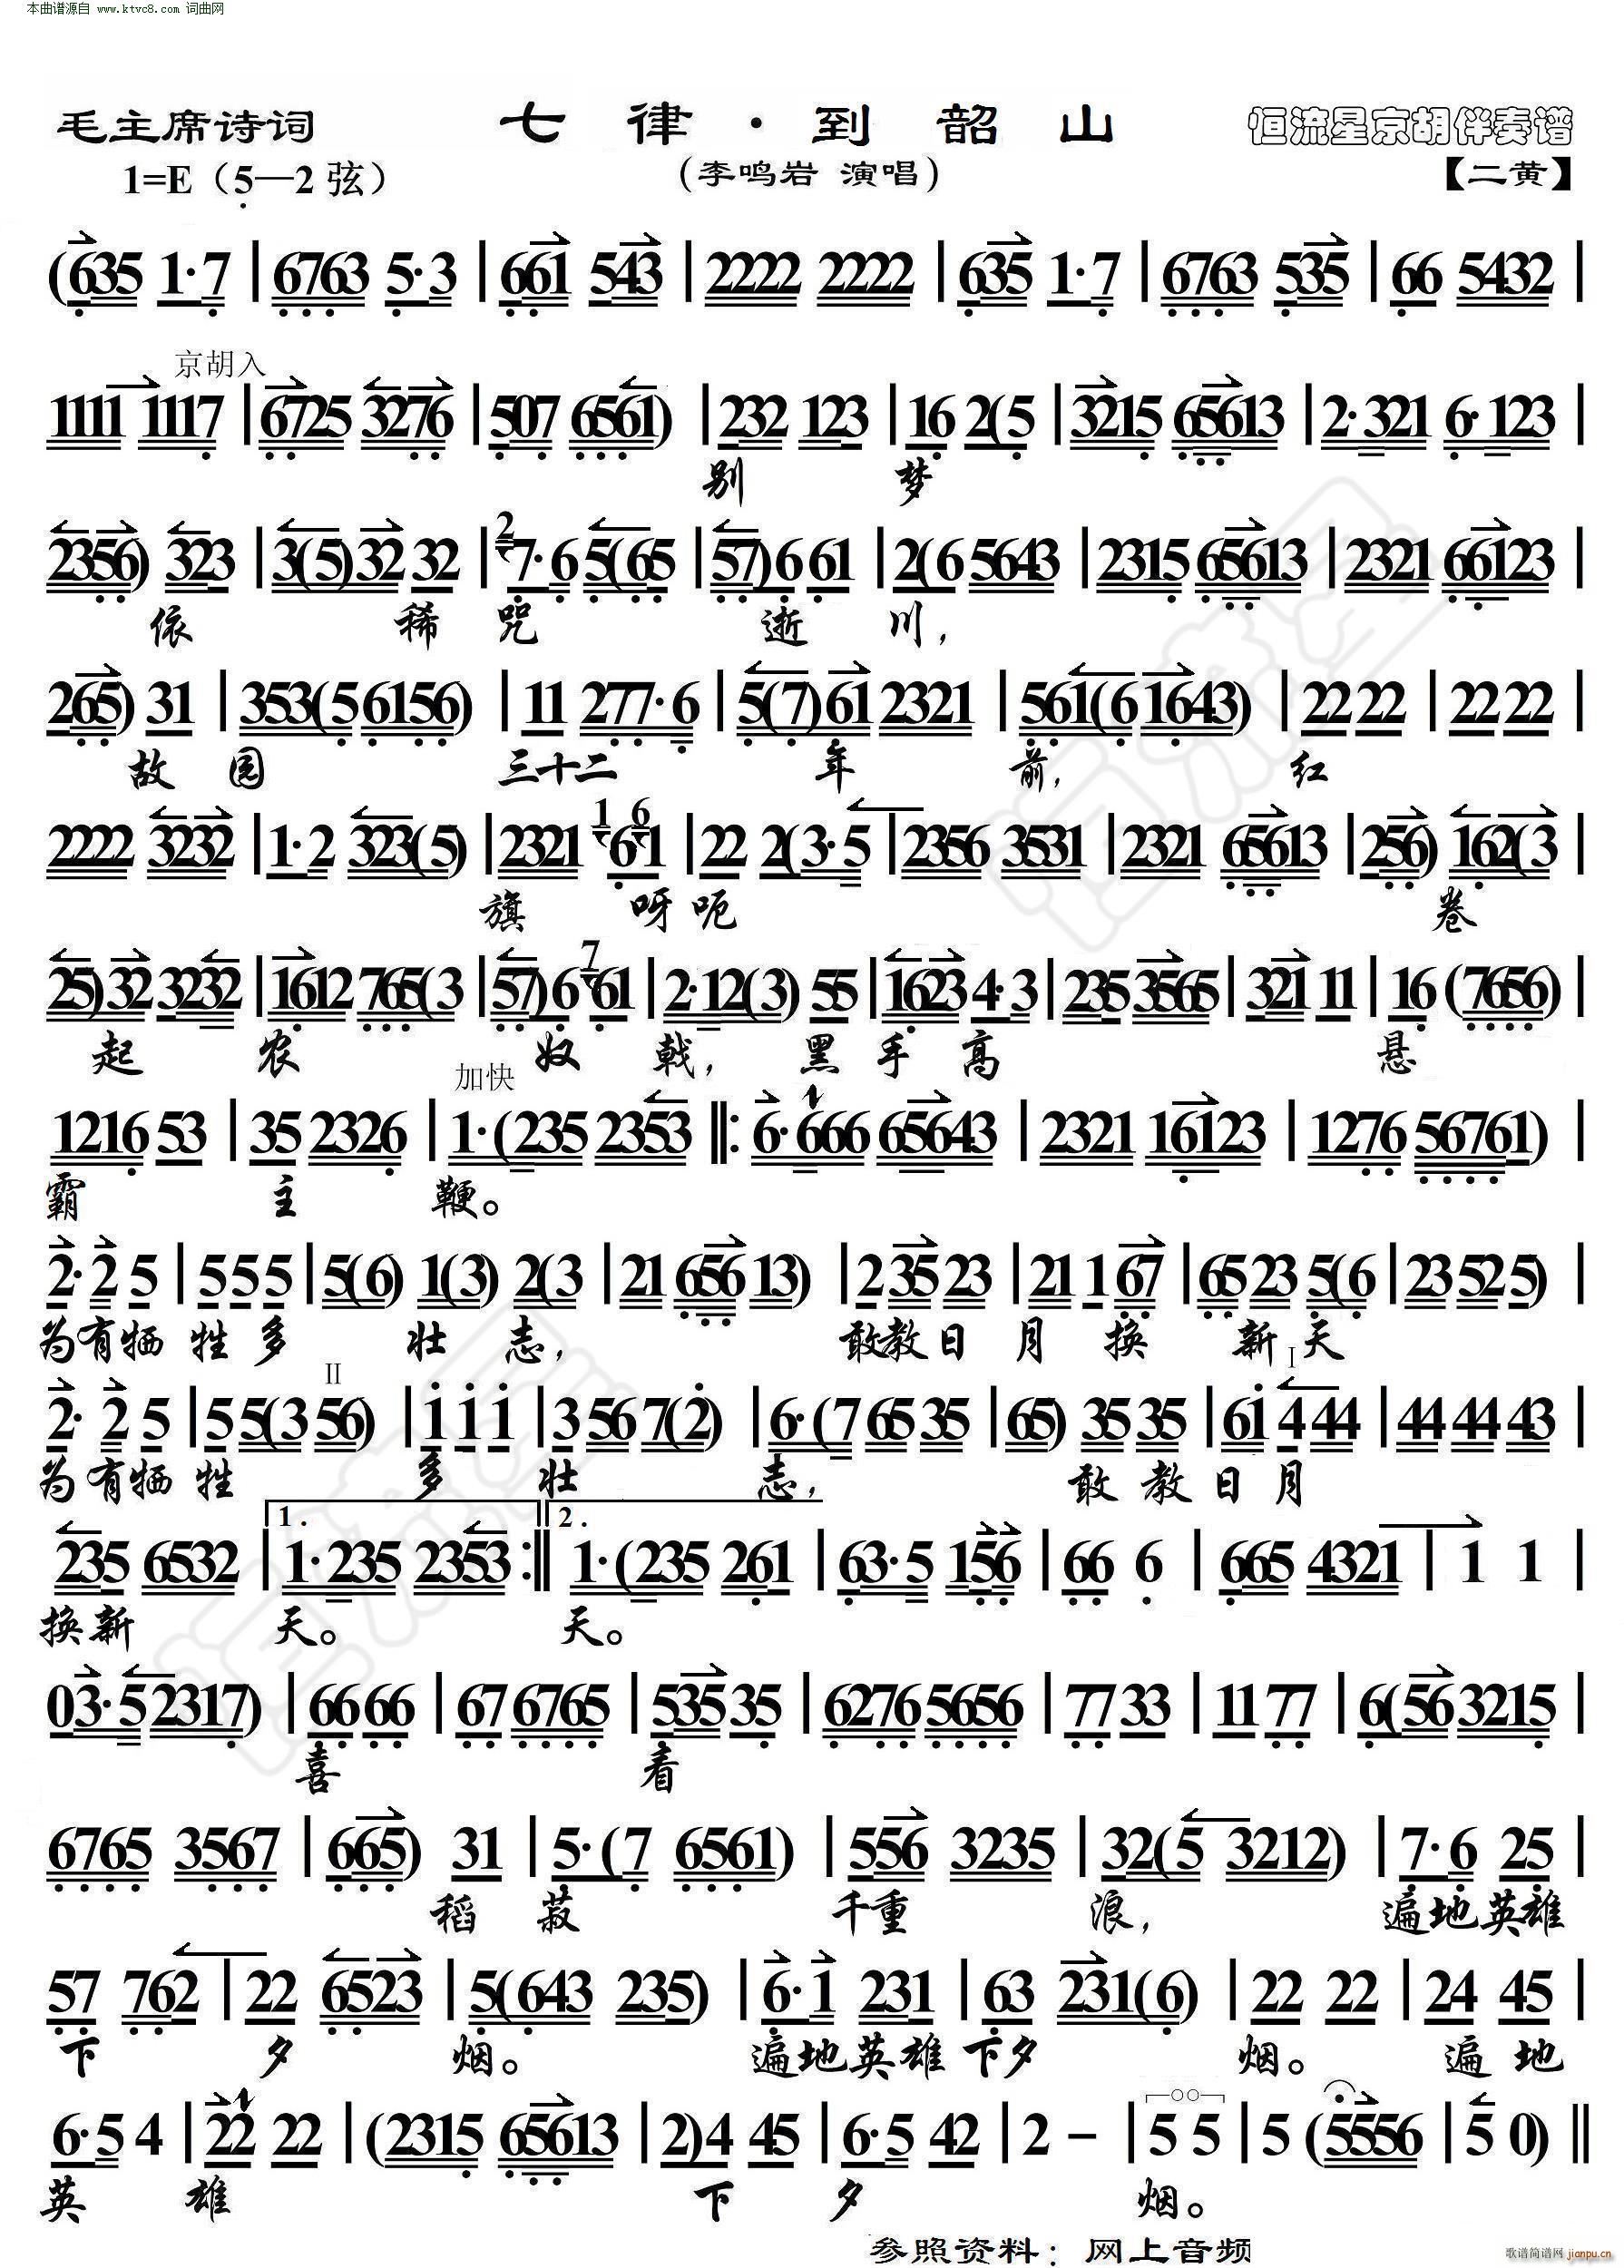 本曲谱源自 www.ktvc8.com 词曲网
毛主席诗词 七律·到韶山 恒流星京胡伴奏谱
1=E（5—2 弦） （李鸣岩 演唱） 【二黄】
(635 1·7 | 6763 5·3 | 661 543 | 2222 2222 | 635 1·7 | 6763 535 | 66 5432 |
京胡入
1111 1117 | 6725 3276 | 507 6561) | 232 123 | 16 2(5 | 3215 65613 | 2·321 6·123 |
别 梦
2356) 323 | 3(5)32 32 | 2 7·6 5(65 | 57)6 61 | 2(6 5643 | 2315 65613 | 2321 66123 |
依 稀 咒 逝 川，
265) 31 | 353(5 6156) | 11 277·6 | 5(7)61 2321 | 561(6 1643) | 22 22 | 22 22 |
故 园 三十二 年 前， 红
2222 3232 | 1·2 323(5) | 2321 1 6 61 | 22 2(3·5 | 2356 3531 | 2321 65613 | 256) 162(3 |
旗 呀呃 卷
25)32 3232 | 1612 765(3 | 57)6 7 61 | 2·12(3) 55 | 1623 4·3 | 235 3565 | 321 11 | 16 (7656) |
起 农 奴 戟， 黑 手 高 悬
加快
1216 53 | 35 2326 | 1·(235 2353 ‖: 6·666 65643 | 2321 16123 | 1276 56761) |
霸 主 鞭。
2·2 5 | 5 5 5 | 5(6) 1(3) 2(3 | 21 656 13) | 2 35 23 | 21 1 67 | 65 23 5(6 | 23 52 5) |
为有牺 牲 多 壮 志， 敢教日 月 换 新 天
II I
2· 2 5 | 5 5(3 56) | 1 1 1 | 3 56 7(2) | 6·(7 65 35 | 65) 35 35 | 61 4 44 | 44 44 43 |
为有牺 牲 多 壮 志， 敢 教 日 月
1. 2.
235 6532 | 1·235 2353 :‖ 1·(235 261 | 63·5 156 | 66 6 | 665 4321 | 1 1 |
换新 天。 天。
03·5 2317) | 66 66 | 67 6765 | 535 35 | 6276 5656 | 77 33 | 11 77 | 6(56 3215 |
喜 看
6765 3567 | 665) 31 | 5·(7 6561) | 556 3235 | 32(5 3212) | 7·6 25 |
稻 菽 千重 浪， 遍地英雄
57 762 | 22 6523 | 5(643 235) | 6·1 231 | 63 231(6) | 22 22 | 24 45 |
下 夕 烟。 遍地英雄 下夕 烟。 遍 地
6·5 4 | 22 22 | (2315 65613 | 2)4 45 | 6·5 42 | 2 - | 5 5 | 5 (5556 | 5 0) ‖
英 雄 下 夕 烟。
参照资料：网上音频
歌谱简谱网
jianpu.cn